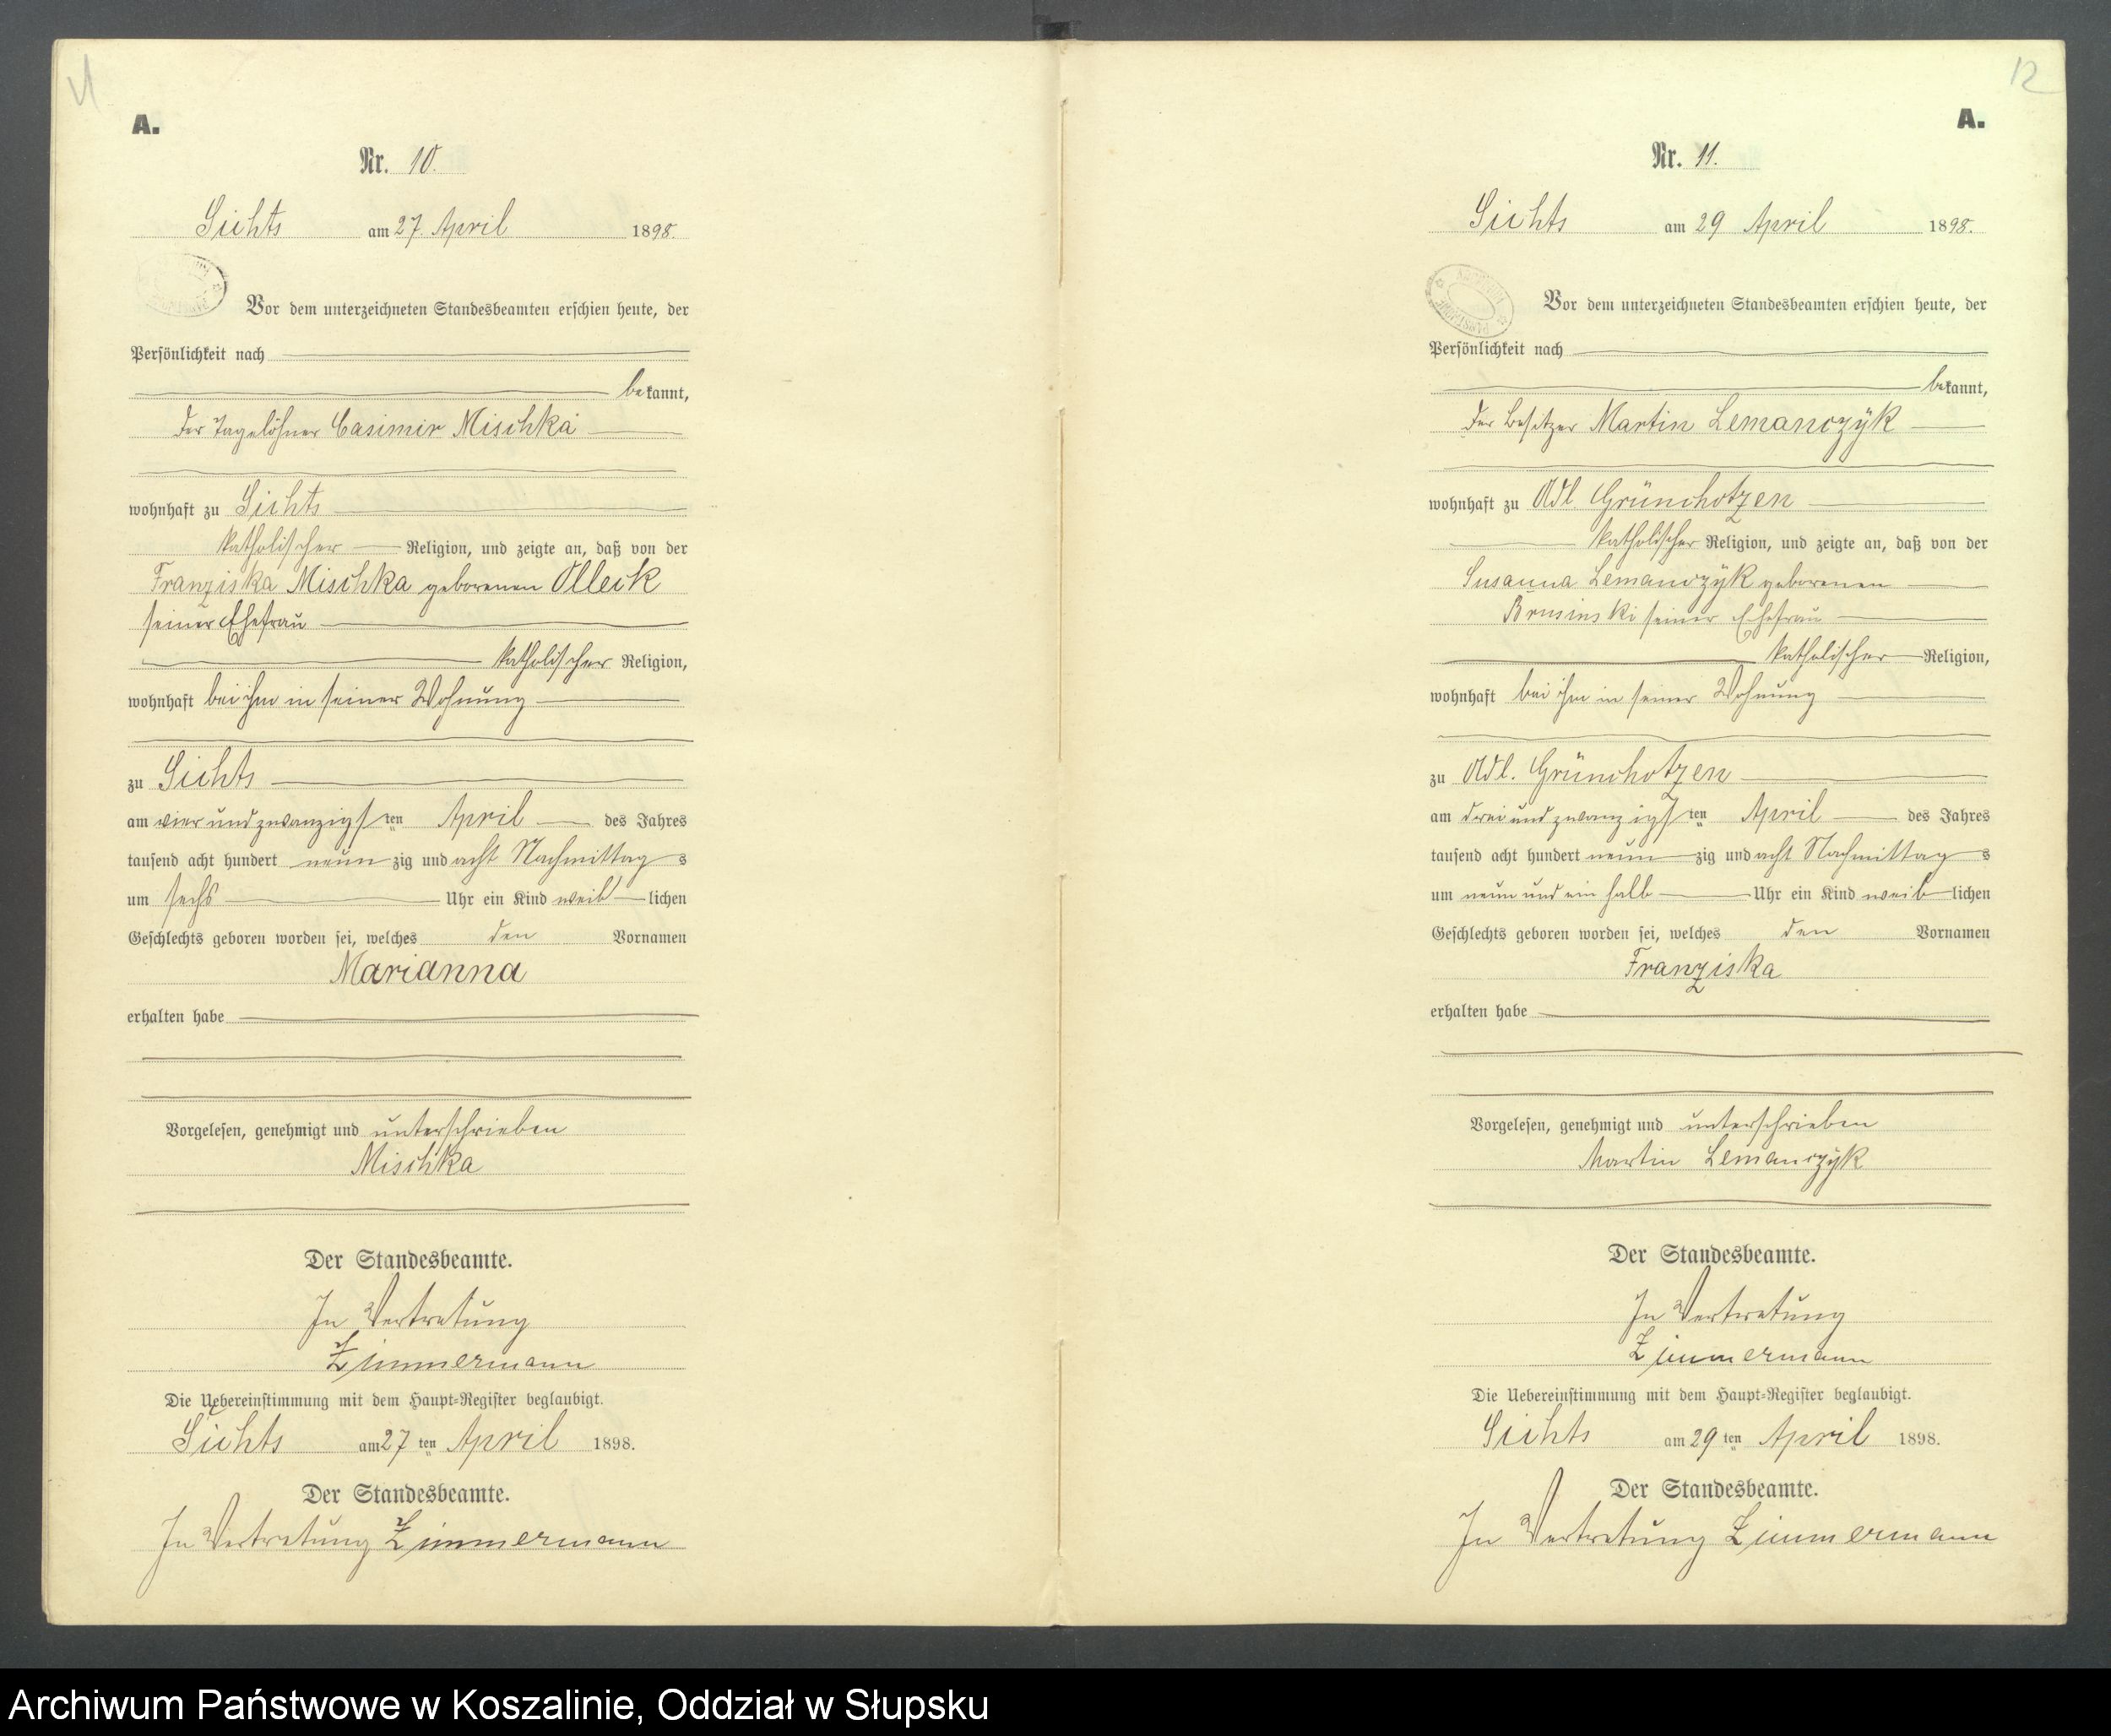 A.
Nr. 10.
Sichts am 27. April 1898.
Vor dem unterzeichneten Standesbeamten erschien heute, der
Persönlichkeit nach
bekannt,
der Tagelöhner Casimir Mischka
wohnhaft zu Sichts
katholischer Religion, und zeigte an, daß von der
Franziska Mischka geborenen Olleck
seiner Ehefrau
katholischer Religion,
wohnhaft bei ihm in seiner Wohnung
zu Sichts
am vier und zwanzigsten April des Jahres
tausend acht hundert neun zig und acht Nachmittags
um sechs Uhr ein Kind weiblichen
Geschlechts geboren worden sei, welches den Vornamen
Marianna
erhalten habe
Vorgelesen, genehmigt und unterschrieben
Mischka
Der Standesbeamte.
In Vertretung
Zimmermann
Die Uebereinstimmung mit dem Haupt-Register beglaubigt.
Sichts am 27 ten April 1898.
Der Standesbeamte.
In Vertretung Zimmermann
12
A.
Nr. 11.
Sichts am 29 April 1898.
Vor dem unterzeichneten Standesbeamten erschien heute, der
Persönlichkeit nach
bekannt,
der Besitzer Martin Lemanczÿk
wohnhaft zu Adl. Grünchotzen
katholischer Religion, und zeigte an, daß von der
Susanna Lemanczÿk geborenen
Brusinski seiner Ehefrau
katholischer Religion,
wohnhaft bei ihm in seiner Wohnung
zu Adl. Grünchotzen
am drei und zwanzigsten April des Jahres
tausend acht hundert neun zig und acht Nachmittags
um neun und ein halb Uhr ein Kind weiblichen
Geschlechts geboren worden sei, welches den Vornamen
Franziska
erhalten habe
Vorgelesen, genehmigt und unterschrieben
Martin Lemanczÿk
Der Standesbeamte.
In Vertretung
Zimmermann
Die Uebereinstimmung mit dem Haupt-Register beglaubigt.
Sichts am 29 ten April 1898.
Der Standesbeamte.
In Vertretung Zimmermann
Archiwum Państwowe w Koszalinie, Oddział w Słupsku